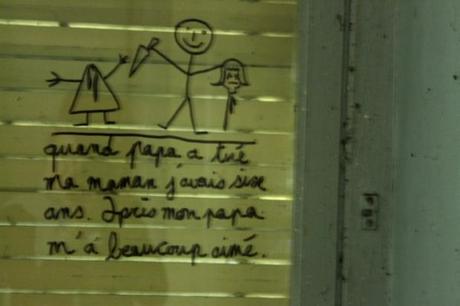 quand papa a tué
ma maman j'avais six
ans. Après mon papa
m'a beaucoup aimé.